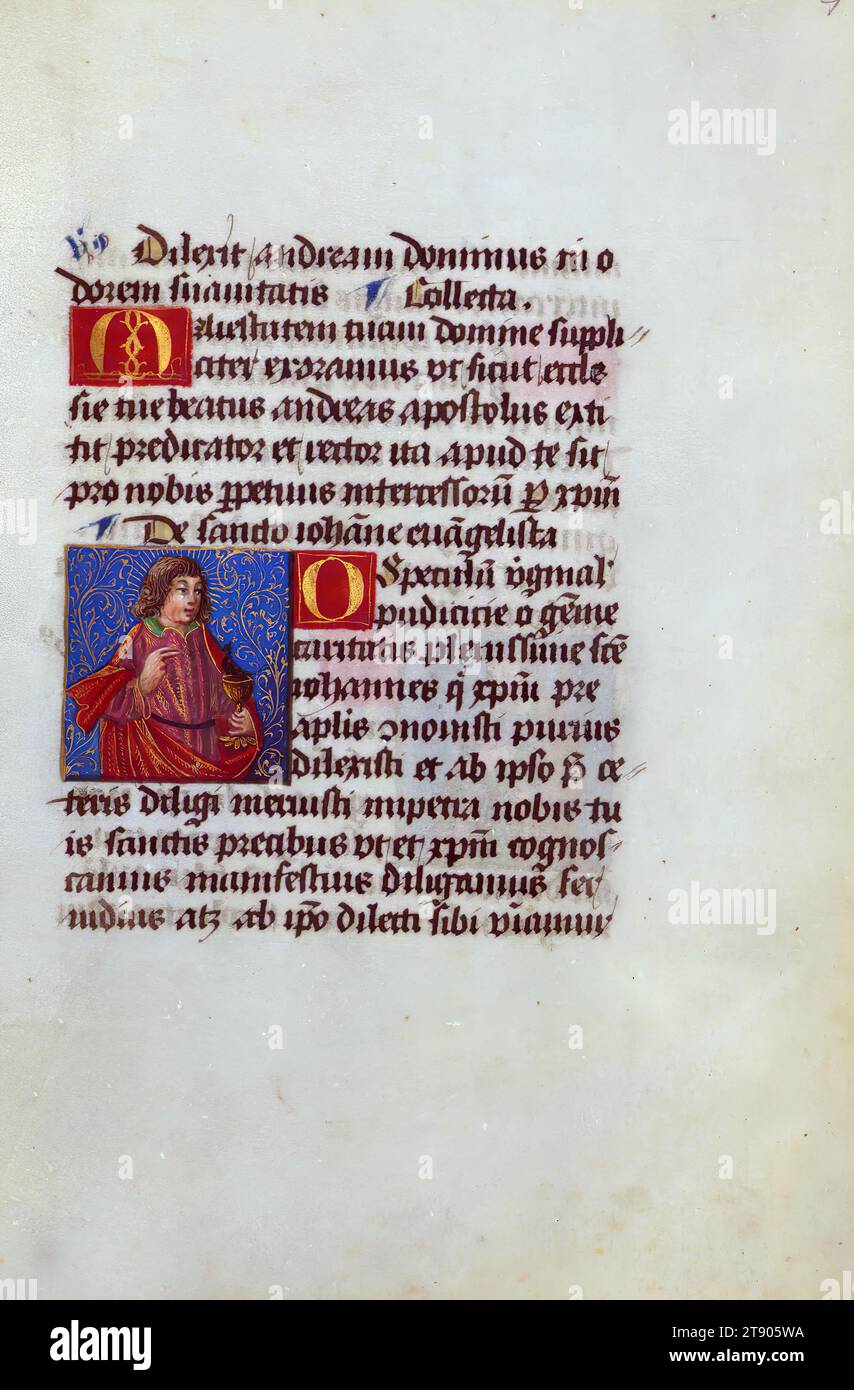 Dilexit andream dominus in o
dorem suauitatis Collecta.
Maiestatem tuam domine suppli
citer exoramus vt sicut eccle
sie tue beatus andreas apostolus exti
tit predicator et rector ita apud te sit
pro nobis ppetuus intercessor p xpm
De sancto iohane euagelista
O Speculu vginal
pudicicie o geme
caritatis plenissime scē
iohannes q xpm pre
aplis
dilexisti et ab ipso p ce
teris diligi meruisti impetra nobis tu
is sanctis precibus vt et xpm cognos
camus manifestius diligamus fer
uidius atz ab ipo dilecti sibi viuamus
alamy
Image ID: 2T905WA
www.alamy.com